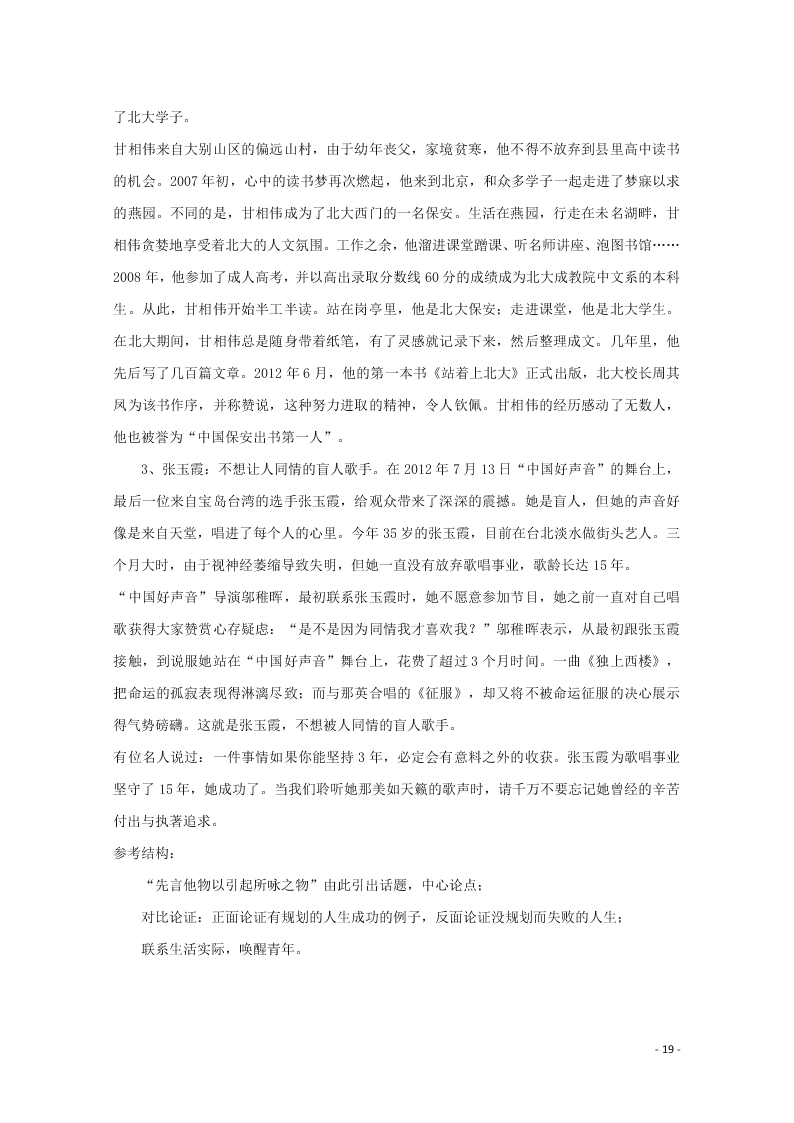 了北大学子。
甘相伟来自大别山区的偏远山村，由于幼年丧父，家境贫寒，他不得不放弃到县里高中读书
的机会。2007 年初，心中的读书梦再次燃起，他来到北京，和众多学子一起走进了梦寐以求
的燕园。不同的是，甘相伟成为了北大西门的一名保安。生活在燕园，行走在未名湖畔，甘
相伟贪婪地享受着北大的人文氛围。工作之余，他溜进课堂蹭课、听名师讲座、泡图书馆……
2008 年，他参加了成人高考，并以高出录取分数线 60 分的成绩成为北大成教院中文系的本科
生。从此，甘相伟开始半工半读。站在岗亭里，他是北大保安；走进课堂，他是北大学生。
在北大期间，甘相伟总是随身带着纸笔，有了灵感就记录下来，然后整理成文。几年里，他
先后写了几百篇文章。2012 年 6 月，他的第一本书《站着上北大》正式出版，北大校长周其
凤为该书作序，并称赞说，这种努力进取的精神，令人钦佩。甘相伟的经历感动了无数人，
他也被誉为“中国保安出书第一人”。
3、张玉霞：不想让人同情的盲人歌手。在 2012 年 7 月 13 日“中国好声音”的舞台上，
最后一位来自宝岛台湾的选手张玉霞，给观众带来了深深的震撼。她是盲人，但她的声音好
像是来自天堂，唱进了每个人的心里。今年 35 岁的张玉霞，目前在台北淡水做街头艺人。三
个月大时，由于视神经萎缩导致失明，但她一直没有放弃歌唱事业，歌龄长达 15 年。
“中国好声音”导演邬稚晖，最初联系张玉霞时，她不愿意参加节目，她之前一直对自己唱
歌获得大家赞赏心存疑虑：“是不是因为同情我才喜欢我？”邬稚晖表示，从最初跟张玉霞
接触，到说服她站在“中国好声音”舞台上，花费了超过 3 个月时间。一曲《独上西楼》，
把命运的孤寂表现得淋漓尽致；而与那英合唱的《征服》，却又将不被命运征服的决心展示
得气势磅礴。这就是张玉霞，不想被人同情的盲人歌手。
有位名人说过：一件事情如果你能坚持 3 年，必定会有意料之外的收获。张玉霞为歌唱事业
坚守了 15 年，她成功了。当我们聆听她那美如天籁的歌声时，请千万不要忘记她曾经的辛苦
付出与执著追求。
参考结构：
“先言他物以引起所咏之物”由此引出话题，中心论点；
对比论证：正面论证有规划的人生成功的例子，反面论证没规划而失败的人生；
联系生活实际，唤醒青年。
- 19 -